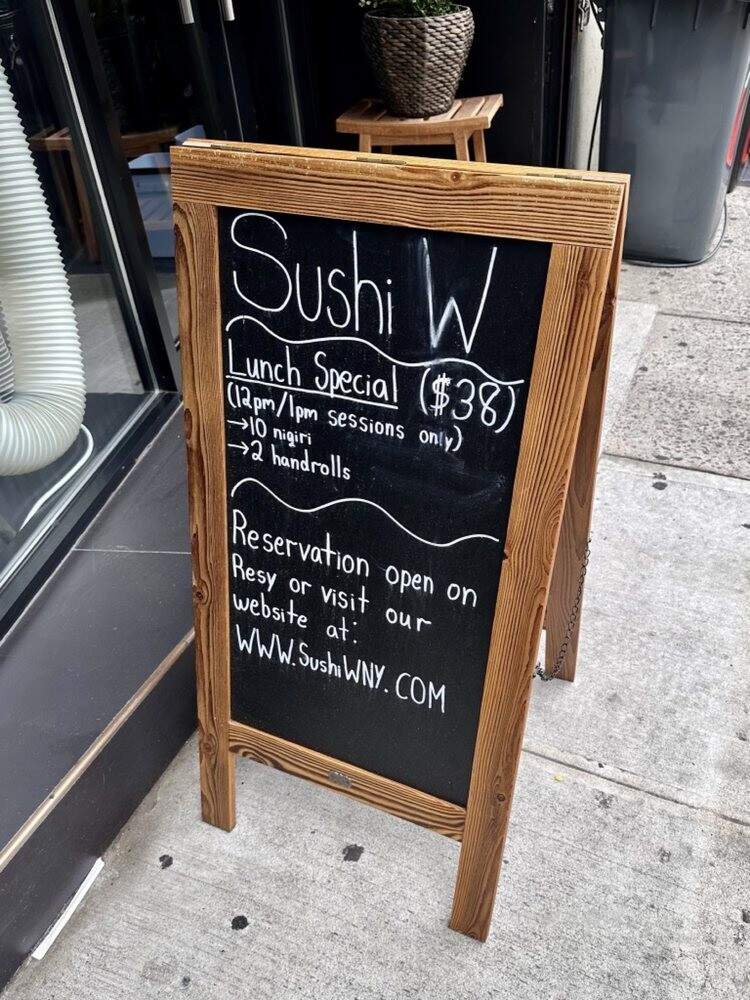 Sushi W
Lunch Special ($38)
(12pm/1pm sessions only)
→10 nigiri
→2 handrolls
Reservation open on
Resy or visit our
website at:
WWW.SushiWNY.COM